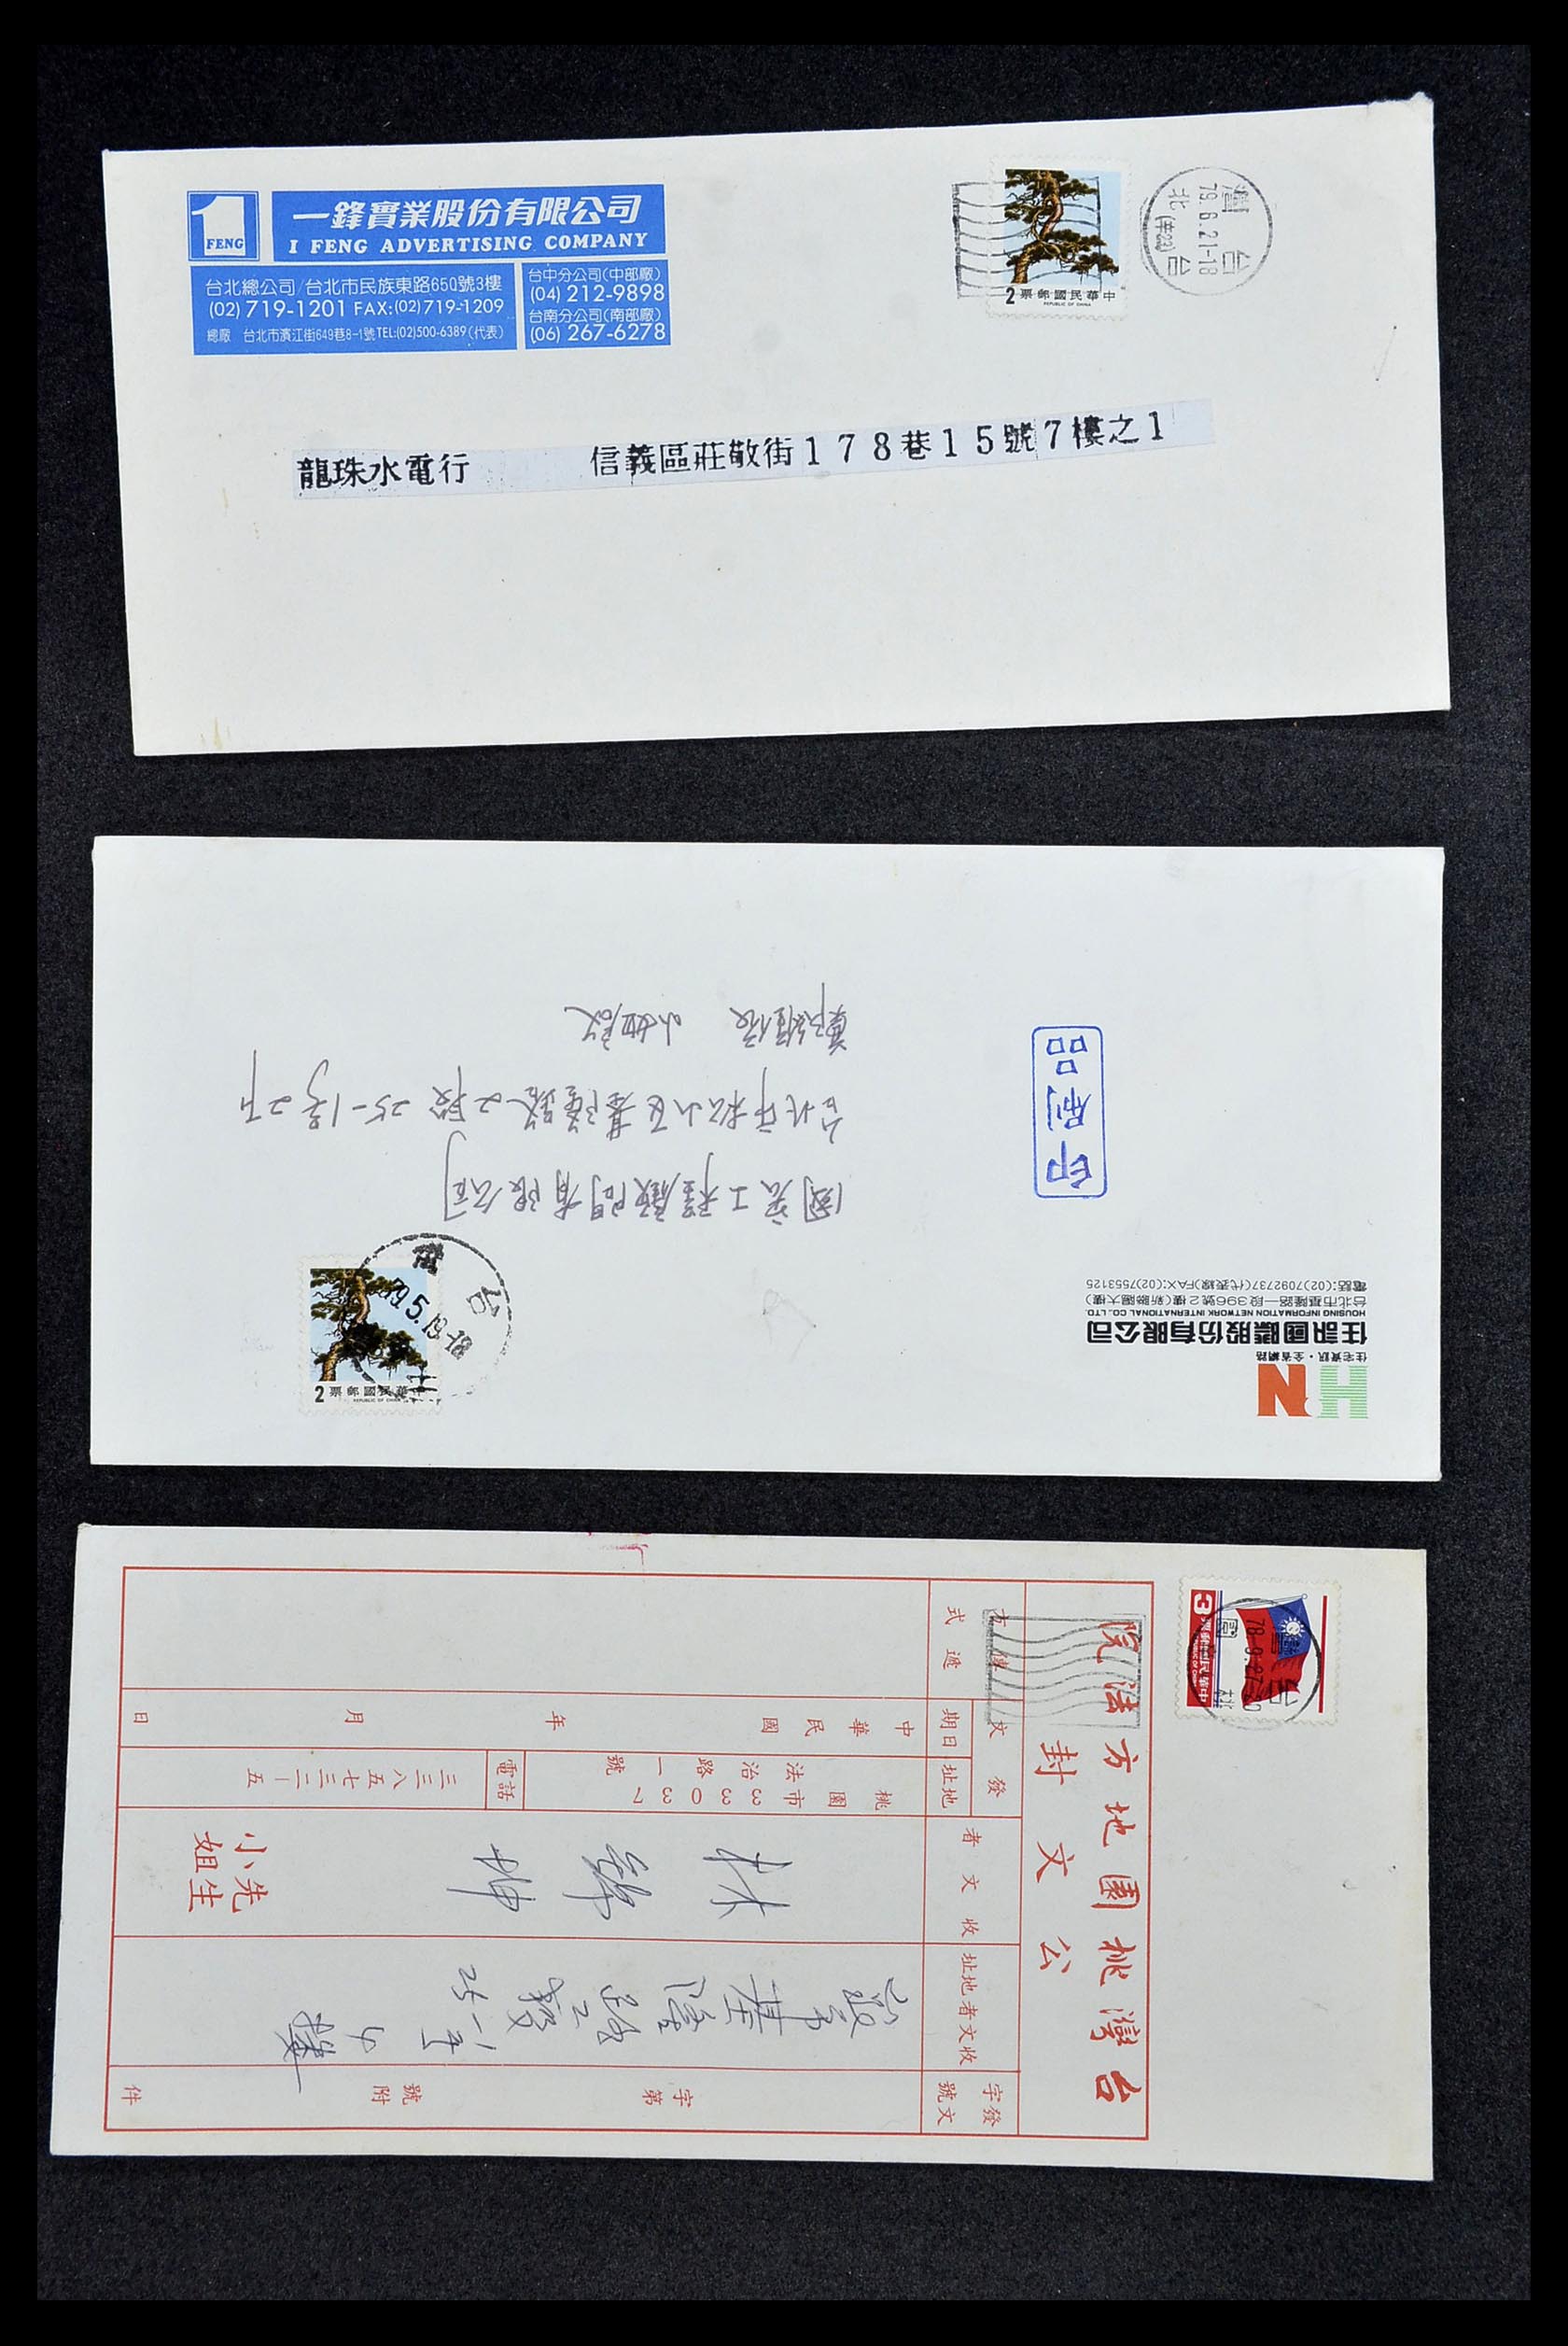 1
FENG
一鋒實業股份有限公司
I FENG ADVERTISING COMPANY
台北總公司/台北市民族東路650號3樓
(02) 719-1201 FAX:(02) 719-1209
總廠 台北市濱江街649巷8-1號TEL:(02)500-6389(代表)
台中分公司(中部廠)
(04) 212-9898
台南分公司(南部廠)
(06) 267-6278
2 票郵國民華中
REPUBLIC OF CHINA
台灣
79.6.21-18
台北
龍珠水電行 信義區莊敬街178巷15號7樓之1
HN
住宅資訊・全省網路
住訊國際股份有限公司
HOUSING INFORMATION NETWORK INTERNATIONAL CO., LTD.
台北市基隆路一段396號2樓(新聯陽大樓)
電話:(02)7092737(代表線)FAX:(02)7553125
印刷品
工程顧問有限公司
台北市松山區基隆路2段25-1號2F
小姐啟
2 票郵國民華中
REPUBLIC OF CHINA
79.5.19
台
3
78.9.27
台灣
桃園
台灣桃園地方法院
公文封
發文字號
字第
號附
件
收文者地址
基隆路二段
收文者
林
先生
小姐
發文
地址
桃園市33037
法治路一號
電話
三三八五七三二一五
日期
中華民國
年
月
日
傳遞方式